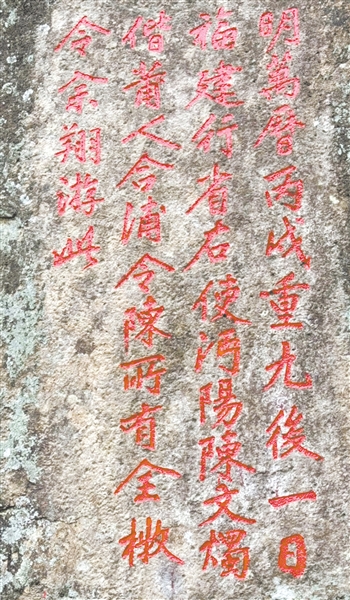 明萬曆丙戌重九後一日
福建行省右使沔陽陳文燭
偕莆人合浦令陳所有全椒
令佘翔游此